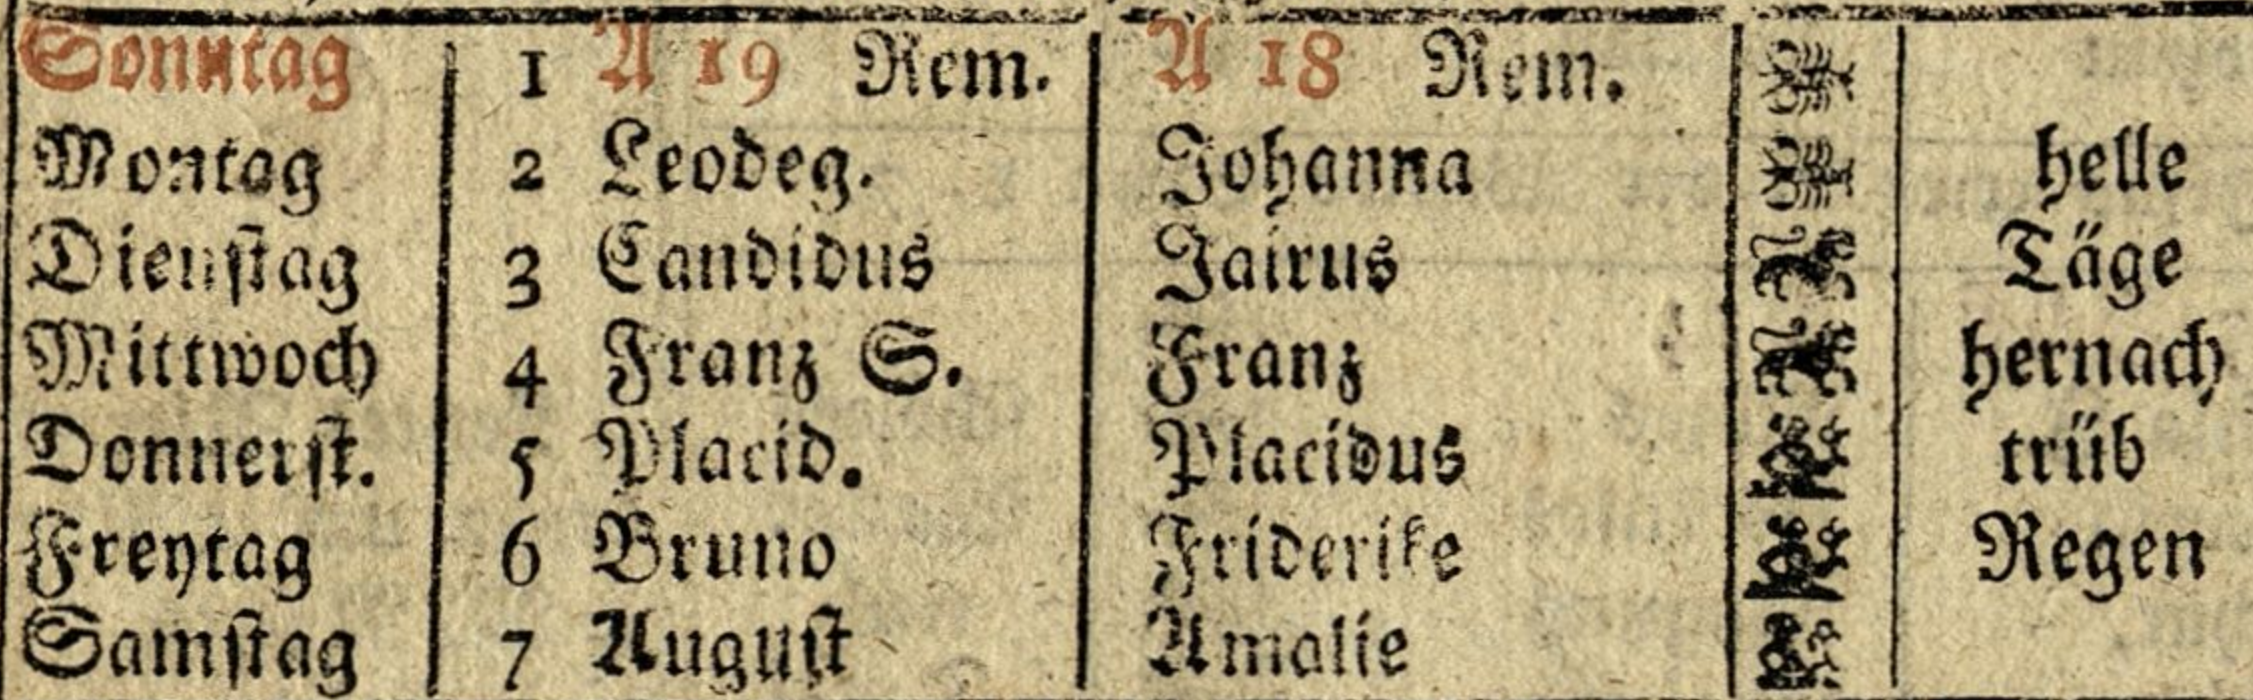 Sonntag 1 A 19 Rem. A 18 Rem.
Montag 2 Leodeg. Johanna helle
Dienstag 3 Candidus Jairus Täge
Mittwoch 4 Franz S. Franz hernach
Donnerst. 5 Placid. Placidus trüb
Freytag 6 Bruno Friderike Regen
Samstag 7 August Amalie